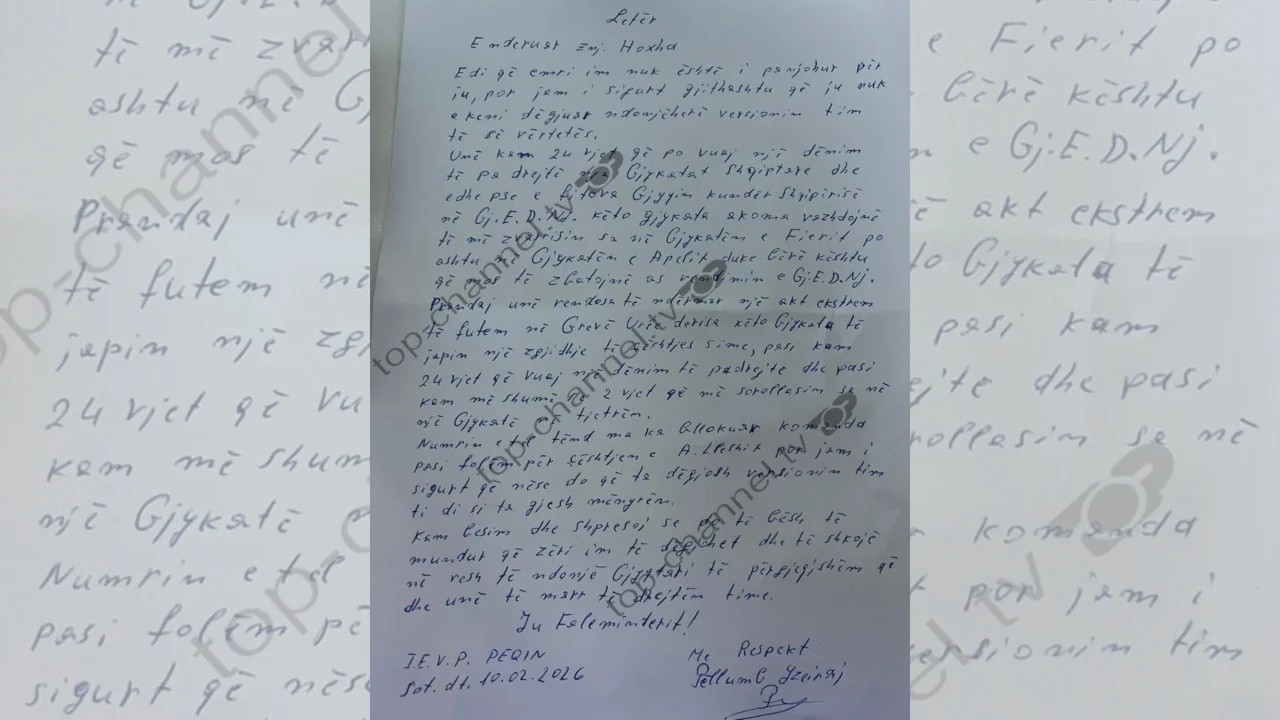 Letër
Enderuar znj. Hoxha
E di që emri im nuk është i panjohur për
ju, por jam i sigurt gjithashtu që ju nuk
e keni dëgjuar ndonjëherë versionin tim
të së vërtetës.
Unë kam 24 vjet që po vuaj një dënim
të padrejtë nga Gjykatat Shqiptare dhe
edhe pse e fitova Gjyqin kundër Shqipërisë
në Gj.E.D.Nj. këto gjykata akoma vazhdojnë
të më zvarrisin sa në Gjykatën e Fierit po
ashtu në Gjykatën e Apelit duke bërë kështu
që mos të zbatojnë as vendimin e Gj.E.D.Nj.
Prandaj unë vendosa të ndërmar një akt ekstrem
të futem në Grevë Urie derisa këto Gjykata të
japin një zgjidhje të çështjes sime, pasi kam
24 vjet që vuaj një dënim të padrejte dhe pasi
kam më shumë që 2 vjet që më sorollasin sa në
një Gjykatë në tjetrën.
Numrin e tel tënd ma ka bllokuar komanda
pasi folëm për çështjen e A.Lleshit por jam i
sigurt që nëse do që ta dëgjosh versionin tim
ti di si ta gjesh mënyrën.
Kam besim dhe shpresoj se do të bësh të
mundur që zëri im të dëgjohet dhe të shkojë
në vesh të ndonjë Gjyqtari të përgjegjshëm që
dhe unë të marr të drejtën time.
Ju Faleminderit!
I.E.V.P. PEQIN
Sot. dt. 10.02.2026
Me Respekt
Pëllumb Yzeiraj
top-channel.tv
top-channel.tv
top-channel.tv